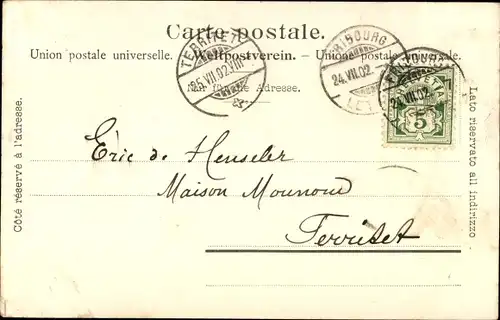 Carte postale.
Union postale universelle. — Weltpostverein. — Unione postale universale.
Nur für die Adresse.
TERRITET
25.VII.02.VIII
FRIBOURG
24.VII.02.
LET
FRIBOURG
24.VII.02.
5
Côté réservé à l'adresse.
Lato riservato all indirizzo.
Eric de Henseler
Maison Mounoud
Territet